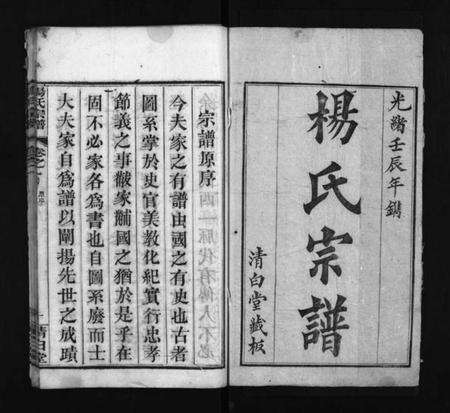 光緒壬辰年鐫
楊氏宗譜
清白堂藏板
宗譜原序
今夫家之有譜由國之有史也古者
圖系掌於史官美教化紀實行忠孝
節義之事黻家黼國之猶於是乎在
固不必家各為書也自圖系廢而士
大夫家自為譜以闡揚先世之成蹟
楊氏宗譜
原序
清白堂